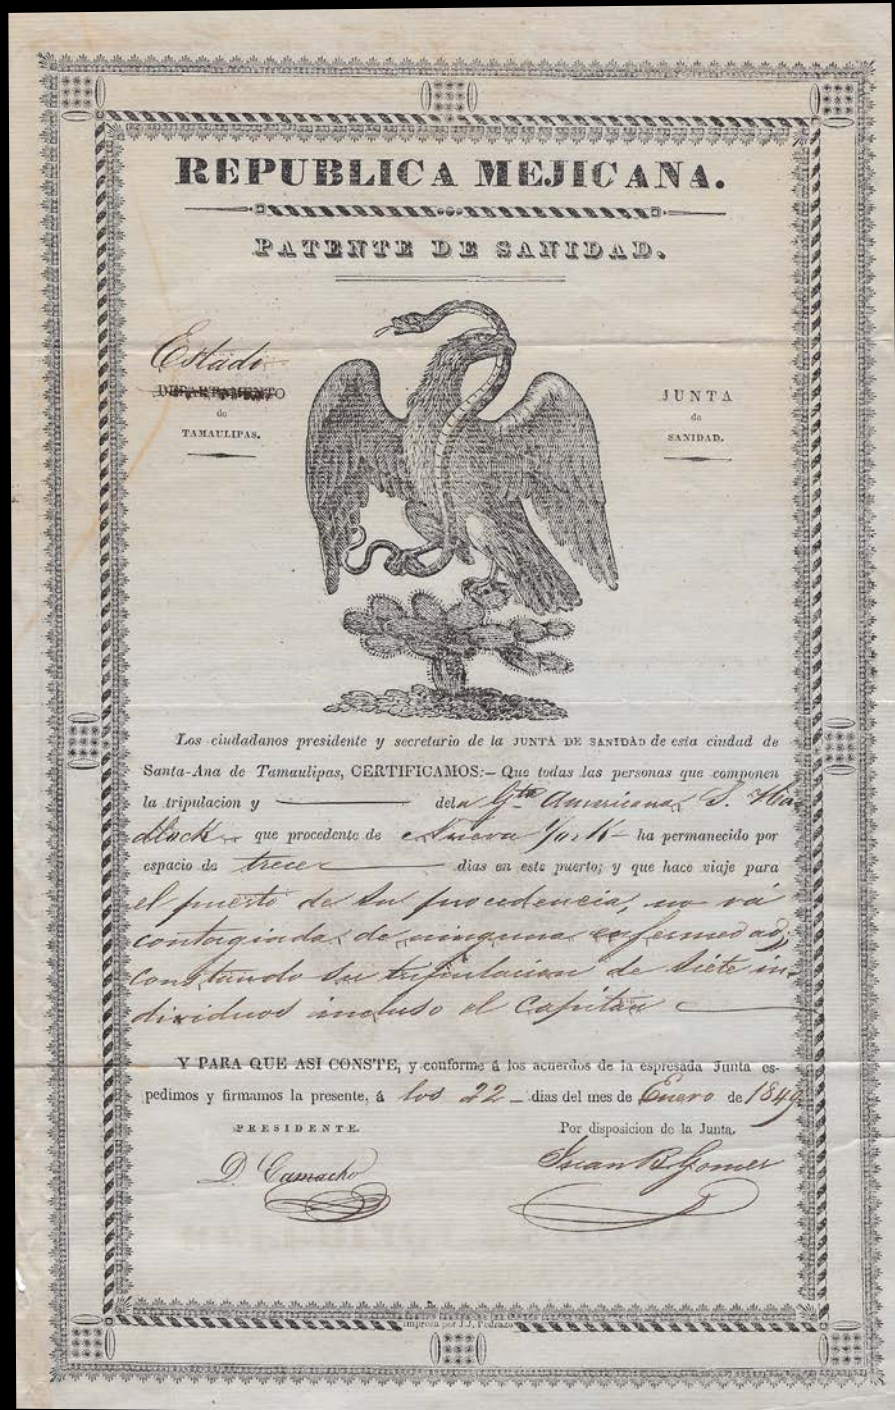 REPUBLICA MEJICANA.
PATENTE DE SANIDAD.
Estado
DEPARTAMENTO
de
TAMAULIPAS.
JUNTA
de
SANIDAD.
Los ciudadanos presidente y secretario de la JUNTA DE SANIDAD de esta ciudad de
Santa-Ana de Tamaulipas, CERTIFICAMOS:- Que todas las personas que componen
la tripulacion y dela Gta Americana S.
que procedente de Nueva York ha permanecido por
espacio de trece dias en este puerto; y que hace viaje para
el puerto de su procedencia, no vá
contagiada de ninguna enfermedad;
constando su tripulacion de siete in-
dividuos incluso el Capitan
Y PARA QUE ASI CONSTE, y conforme á los acuerdos de la espresada Junta es-
pedimos y firmamos la presente, á los 22 dias del mes de Enero de 1849.
PRESIDENTE.
Por disposicion de la Junta.
D. Camacho
Juan B. Gomez
Impresa por J.J. Pedraza